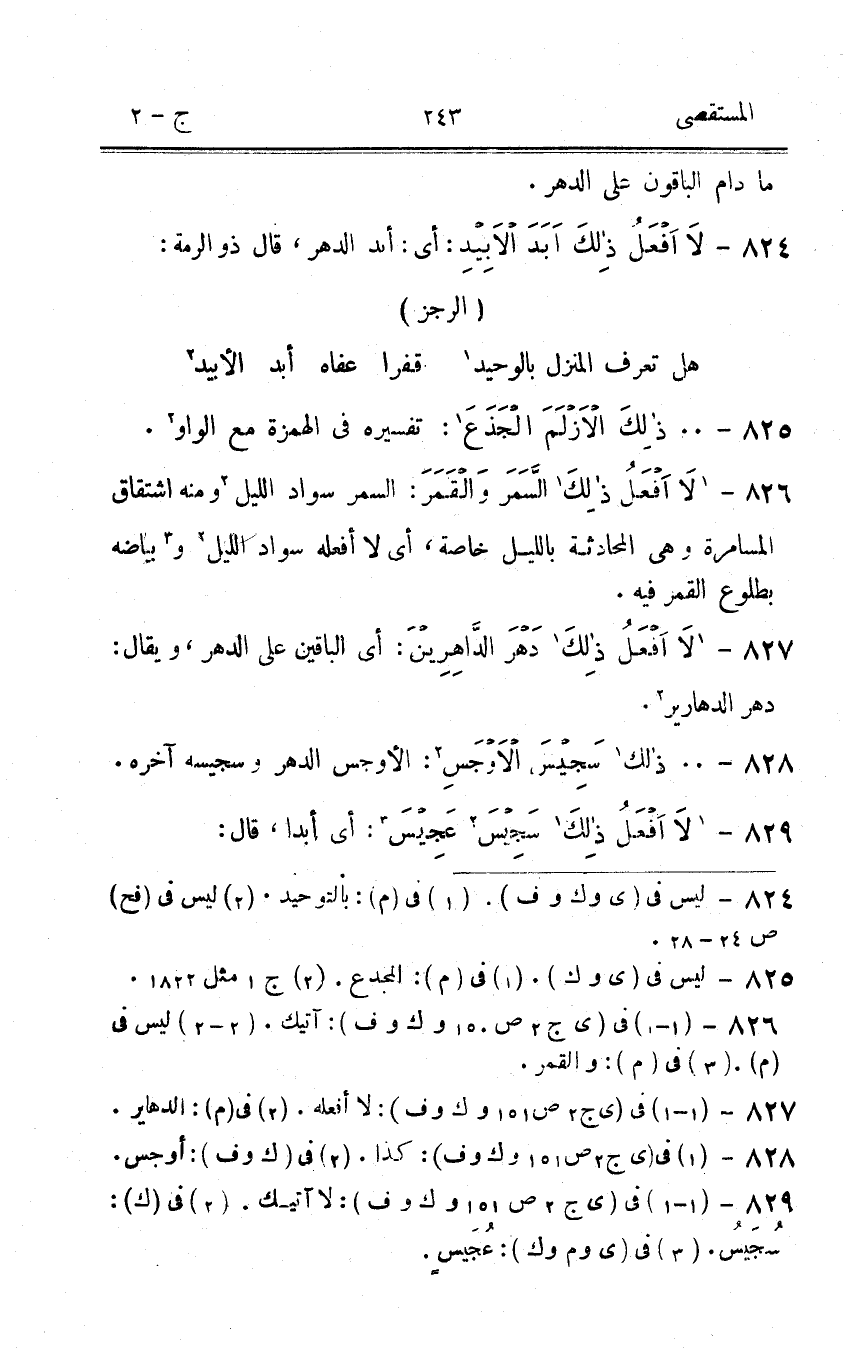 المستقصى ٢٤٣ ج – ٢
ما دام الباقون على الدهر .
٨٢٤ – لَا اَفْعَلُ ذٰلِكَ اَبَدَ الْاَبِيْدِ : أى : أبد الدهر ، قال ذو الرمة :
( الرجز )
هل تعرف المنزل بالوحيد١ قفرا عفاه أبد الأبيد٢
٨٢٥ – .. ذٰلِكَ الْاَزْلَمَ الْجَذَعَ١ : تفسيره فى الهمزة مع الواو٢ .
٨٢٦ – ١لَا اَفْعَلُ ذٰلِكَ١ السَّمَرَ وَالْقَمَرَ : السمر سواد الليل ٢و منه اشتقاق
المسامرة و هى المحادثة بالليل خاصة ، أى لا أفعله سواد الليل٢ و٣ بياضه
بطلوع القمر فيه .
٨٢٧ – ١لَا اَفْعَلُ ذٰلِكَ١ دَهْرَ الدَّاهِرِيْنَ : أى الباقين على الدهر ، و يقال :
دهر الدهارير٢ .
٨٢٨ – .. ذٰلك١ سَجِيْسَ الْاَوْجَسِ٢ : الأوجس الدهر و سجيسه آخره .
٨٢٩ – ١لَا اَفْعَلُ ذٰلِكَ١ سَجِيْسَ٢ عَجِيْسَ٣ : أى أبدا ، قال :
٨٢٤ – ليس فى ( ى و ك و ف ) . ( ١ ) فى ( م ) : بالتوحيد . (٢) ليس فى (فح)
ص ٢٤ – ٢٨ .
٨٢٥ – ليس فى ( ى و ك ) . (١) فى ( م ) : المجدع . (٢) ج ١ مثل ١٨٢٢ .
٨٢٦ – (١–١) فى ( ى ج ٢ ص ١٥٠ و ك و ف ) : آتيك . ( ٢ – ٢ ) ليس فى
(م) . ( ٣ ) فى ( م ) : و القمر .
٨٢٧ – (١–١) فى (ى ج ٢ ص ١٥١ و ك و ف ) : لا أفعله . (٢) فى (م) : الدهاير .
٨٢٨ – (١) فى (ى ج ٢ ص ١٥١ و ك و ف) : كذا . (٢) فى ( ك و ف ) : أوجس .
٨٢٩ – (١–١ ) فى ( ى ج ٢ ص ١٥١ و ك و ف ) : لا آتيك . ( ٢ ) فى (ك) :
سُجَيسُ . ( ٣ ) فى ( ى و م و ك ) : عُجَيسٍ .